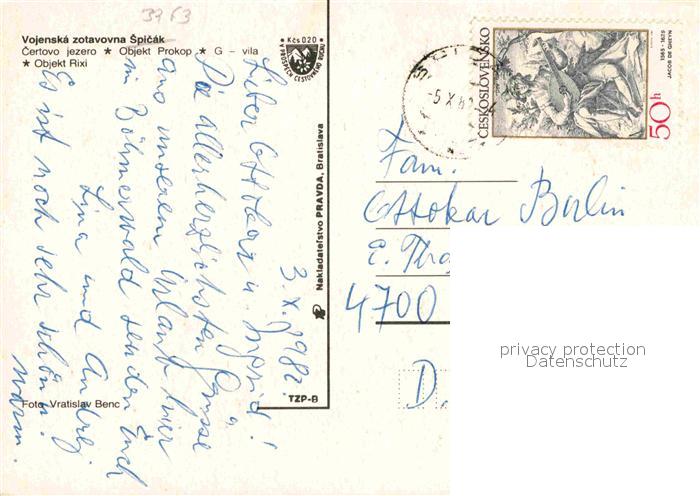 3763
Vojenská zotavovna Špičák
Čertovo jezero ★ Objekt Prokop ★ G – vila
★ Objekt Rixi
Kčs 020
3. X. 1982
Lieber Ottokar u. Ingrid!
Die allerherzlichsten Grüsse
aus unserem Urlaub hier
im Böhmerwald senden Euch
Lina und Andrej
Es ist noch sehr schön u.
warm.
Foto Vratislav Benc
Nakladateľstvo PRAVDA, Bratislava
TZP-B
-5.X.82
ČESKOSLOVENSKO
50h
1565-1629
JACOB DE GHEYN
Fam.
Ottokar Berlin
4700
D.
privacy protection
Datenschutz